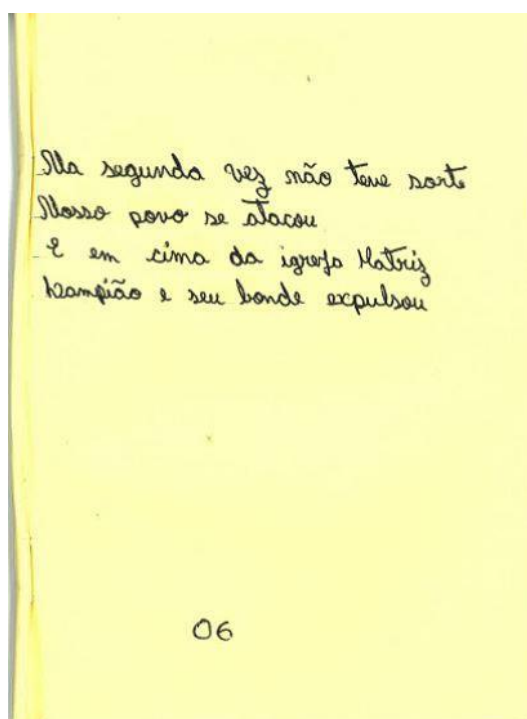 Na segunda vez não teve sorte
Nosso povo se atacou
E em cima da igreja Matriz
Lampião e seu bonde expulsou
06